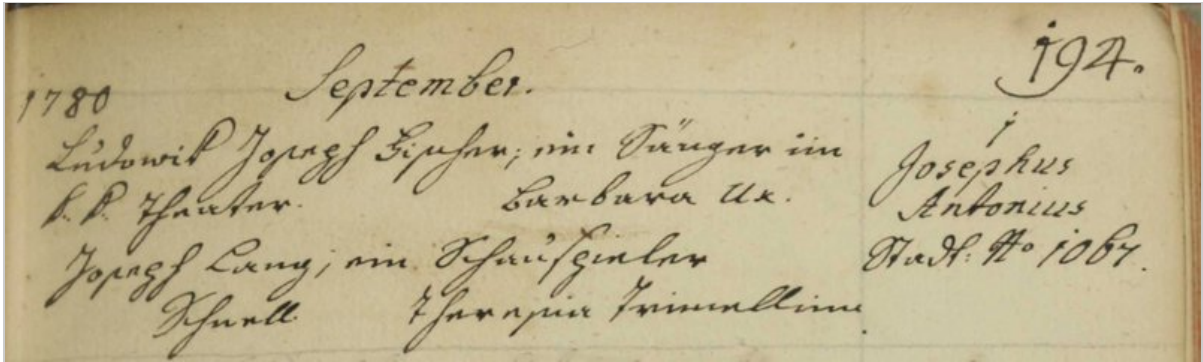 194.
1780 September.
Ludowik Joseph Fischer; ein Sänger im
k. k. Theater. Barbara Ux.
Joseph Lang; ein Schauspieler
Schnell Theresia
1
Josephus
Antonius
Stadt: No 1067.